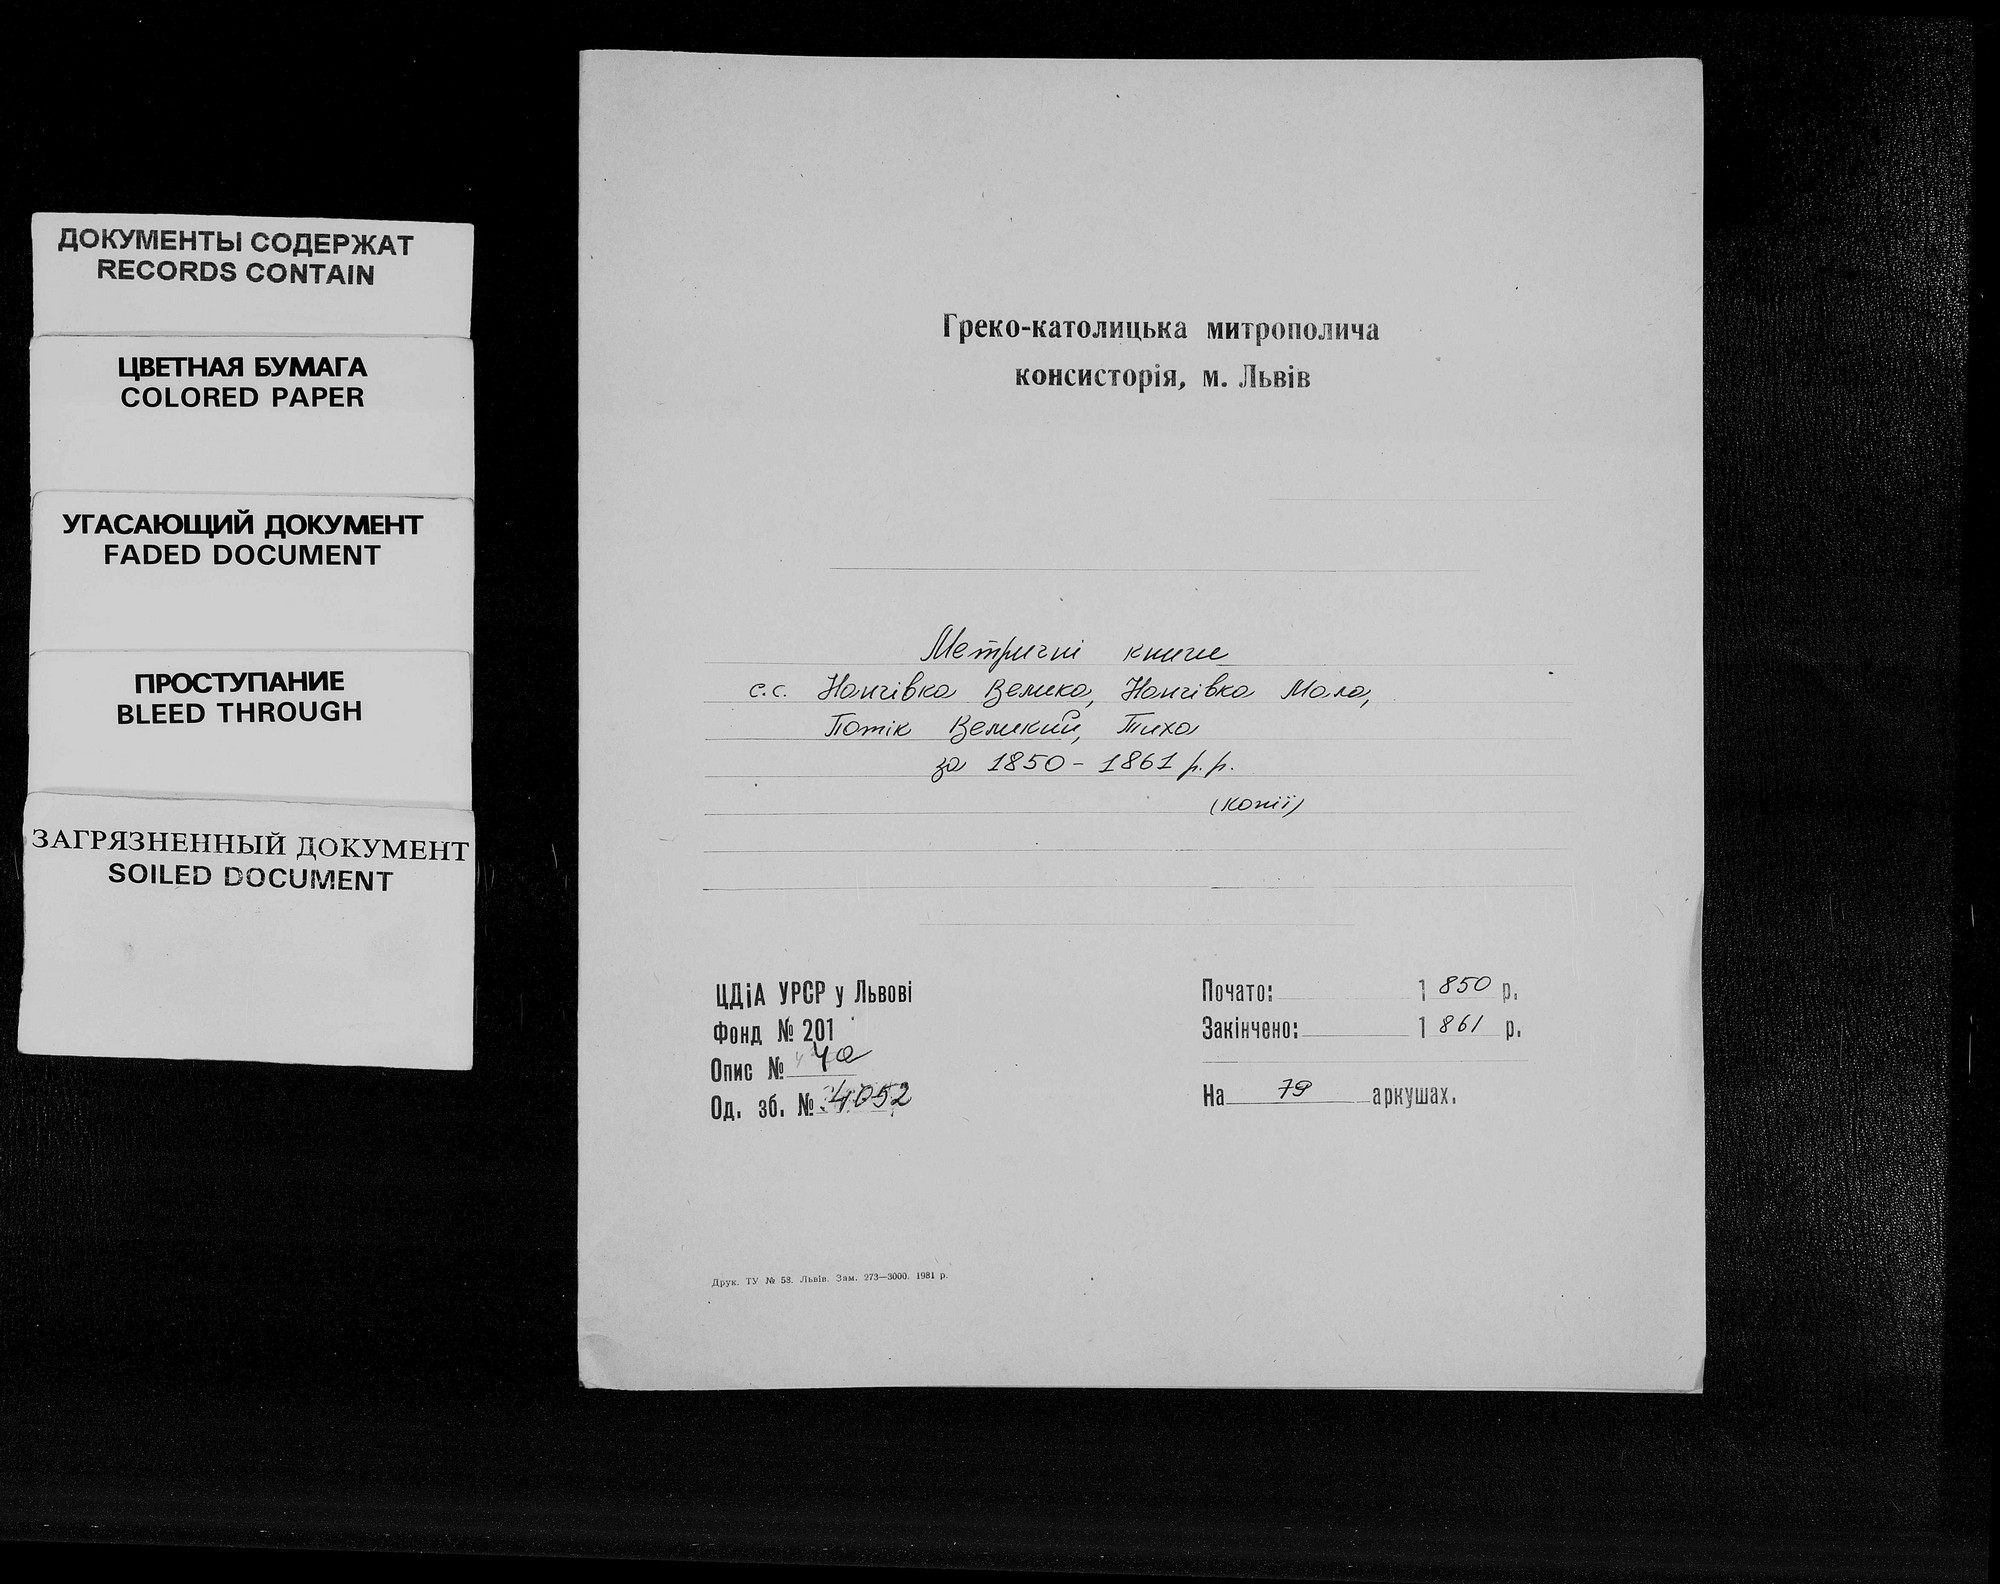 ДОКУМЕНТЫ СОДЕРЖАТ
RECORDS CONTAIN
ЦВЕТНАЯ БУМАГА
COLORED PAPER
УГАСАЮЩИЙ ДОКУМЕНТ
FADED DOCUMENT
ПРОСТУПАНИЕ
BLEED THROUGH
ЗАГРЯЗНЕННЫЙ ДОКУМЕНТ
SOILED DOCUMENT
Греко-католицька митрополича
консисторія, м. Львів
Метричні книги
с.с. Нанчівка Велика, Нанчівка Мала,
Потік Великий, Тиха
за 1850-1861 р.р.
(копії)
ЦДіА УРСР у Львові
Фонд № 201
Опис № 4а
Од. зб. № 4052
Почато: 1850 р.
Закінчено: 1861 р.
На 79 аркушах.
Друк. ТУ № 58. Львів. Зам. 273—3000. 1981 р.